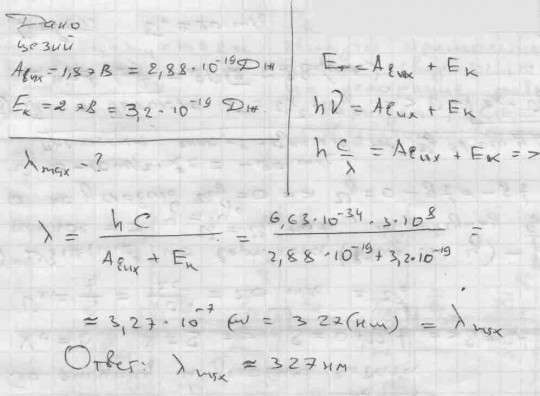 Дано
цезий
Aвых = 1,8 эВ = 2,88 · 10⁻¹⁹ Дж
Eк = 2 эВ = 3,2 · 10⁻¹⁹ Дж
λmax - ?
E = Aвых + Eк
hν = Aвых + Eк
h c/λ = Aвых + Eк =>
λ = hc / (Aвых + Eк) = (6,63·10⁻³⁴ · 3·10⁸) / (2,88·10⁻¹⁹ + 3,2·10⁻¹⁹) =
≈ 3,27 · 10⁻⁷ м = 327(нм) = λmax
Ответ: λmax ≈ 327 нм